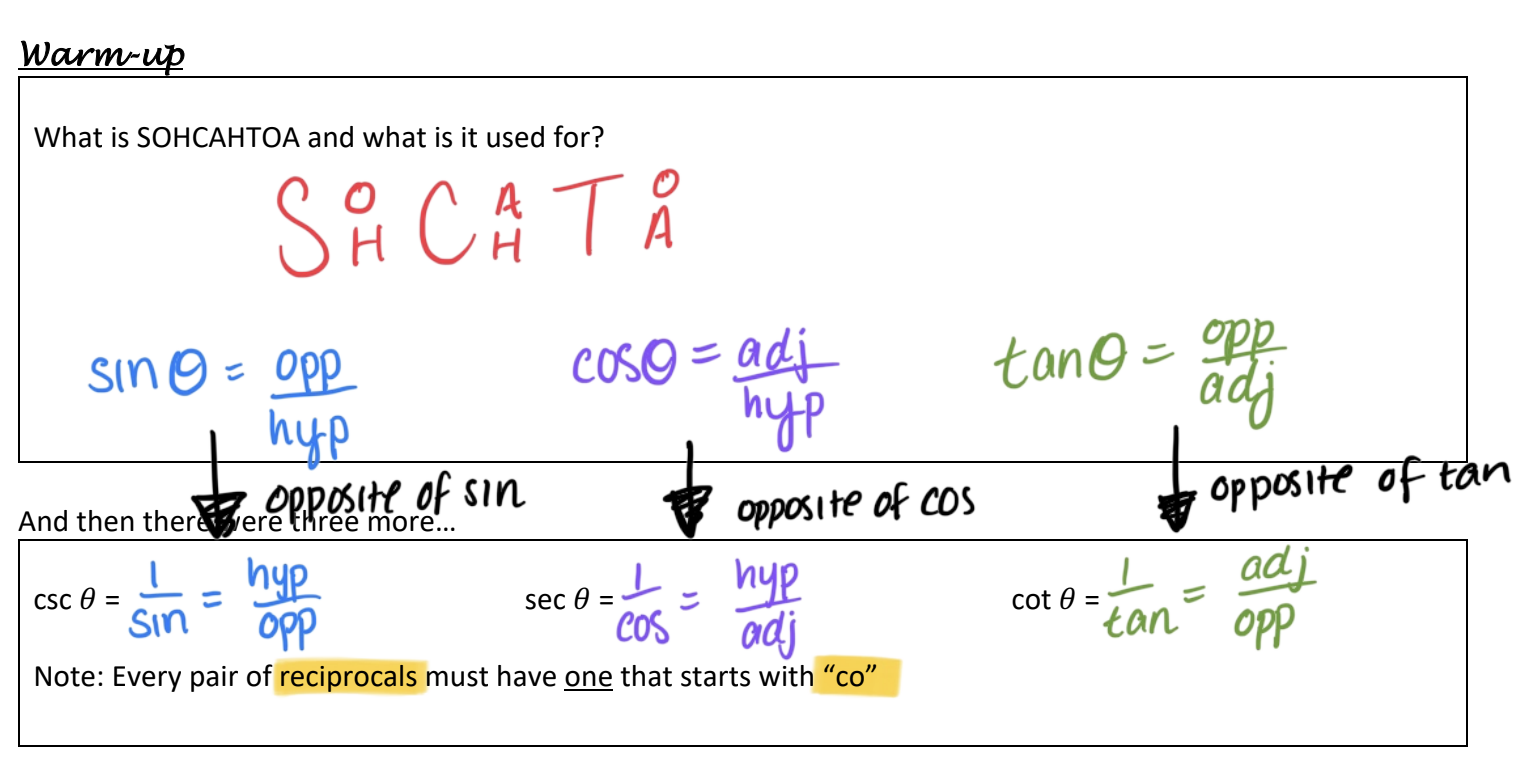 Warm-up
What is SOHCAHTOA and what is it used for?
S O/H C A/H T O/A
sin θ = opp/hyp cosθ = adj/hyp tanθ = opp/adj
opposite of sin opposite of cos opposite of tan
And then there were three more...
csc θ = 1/sin = hyp/opp sec θ = 1/cos = hyp/adj cot θ = 1/tan = adj/opp
Note: Every pair of reciprocals must have one that starts with “co”